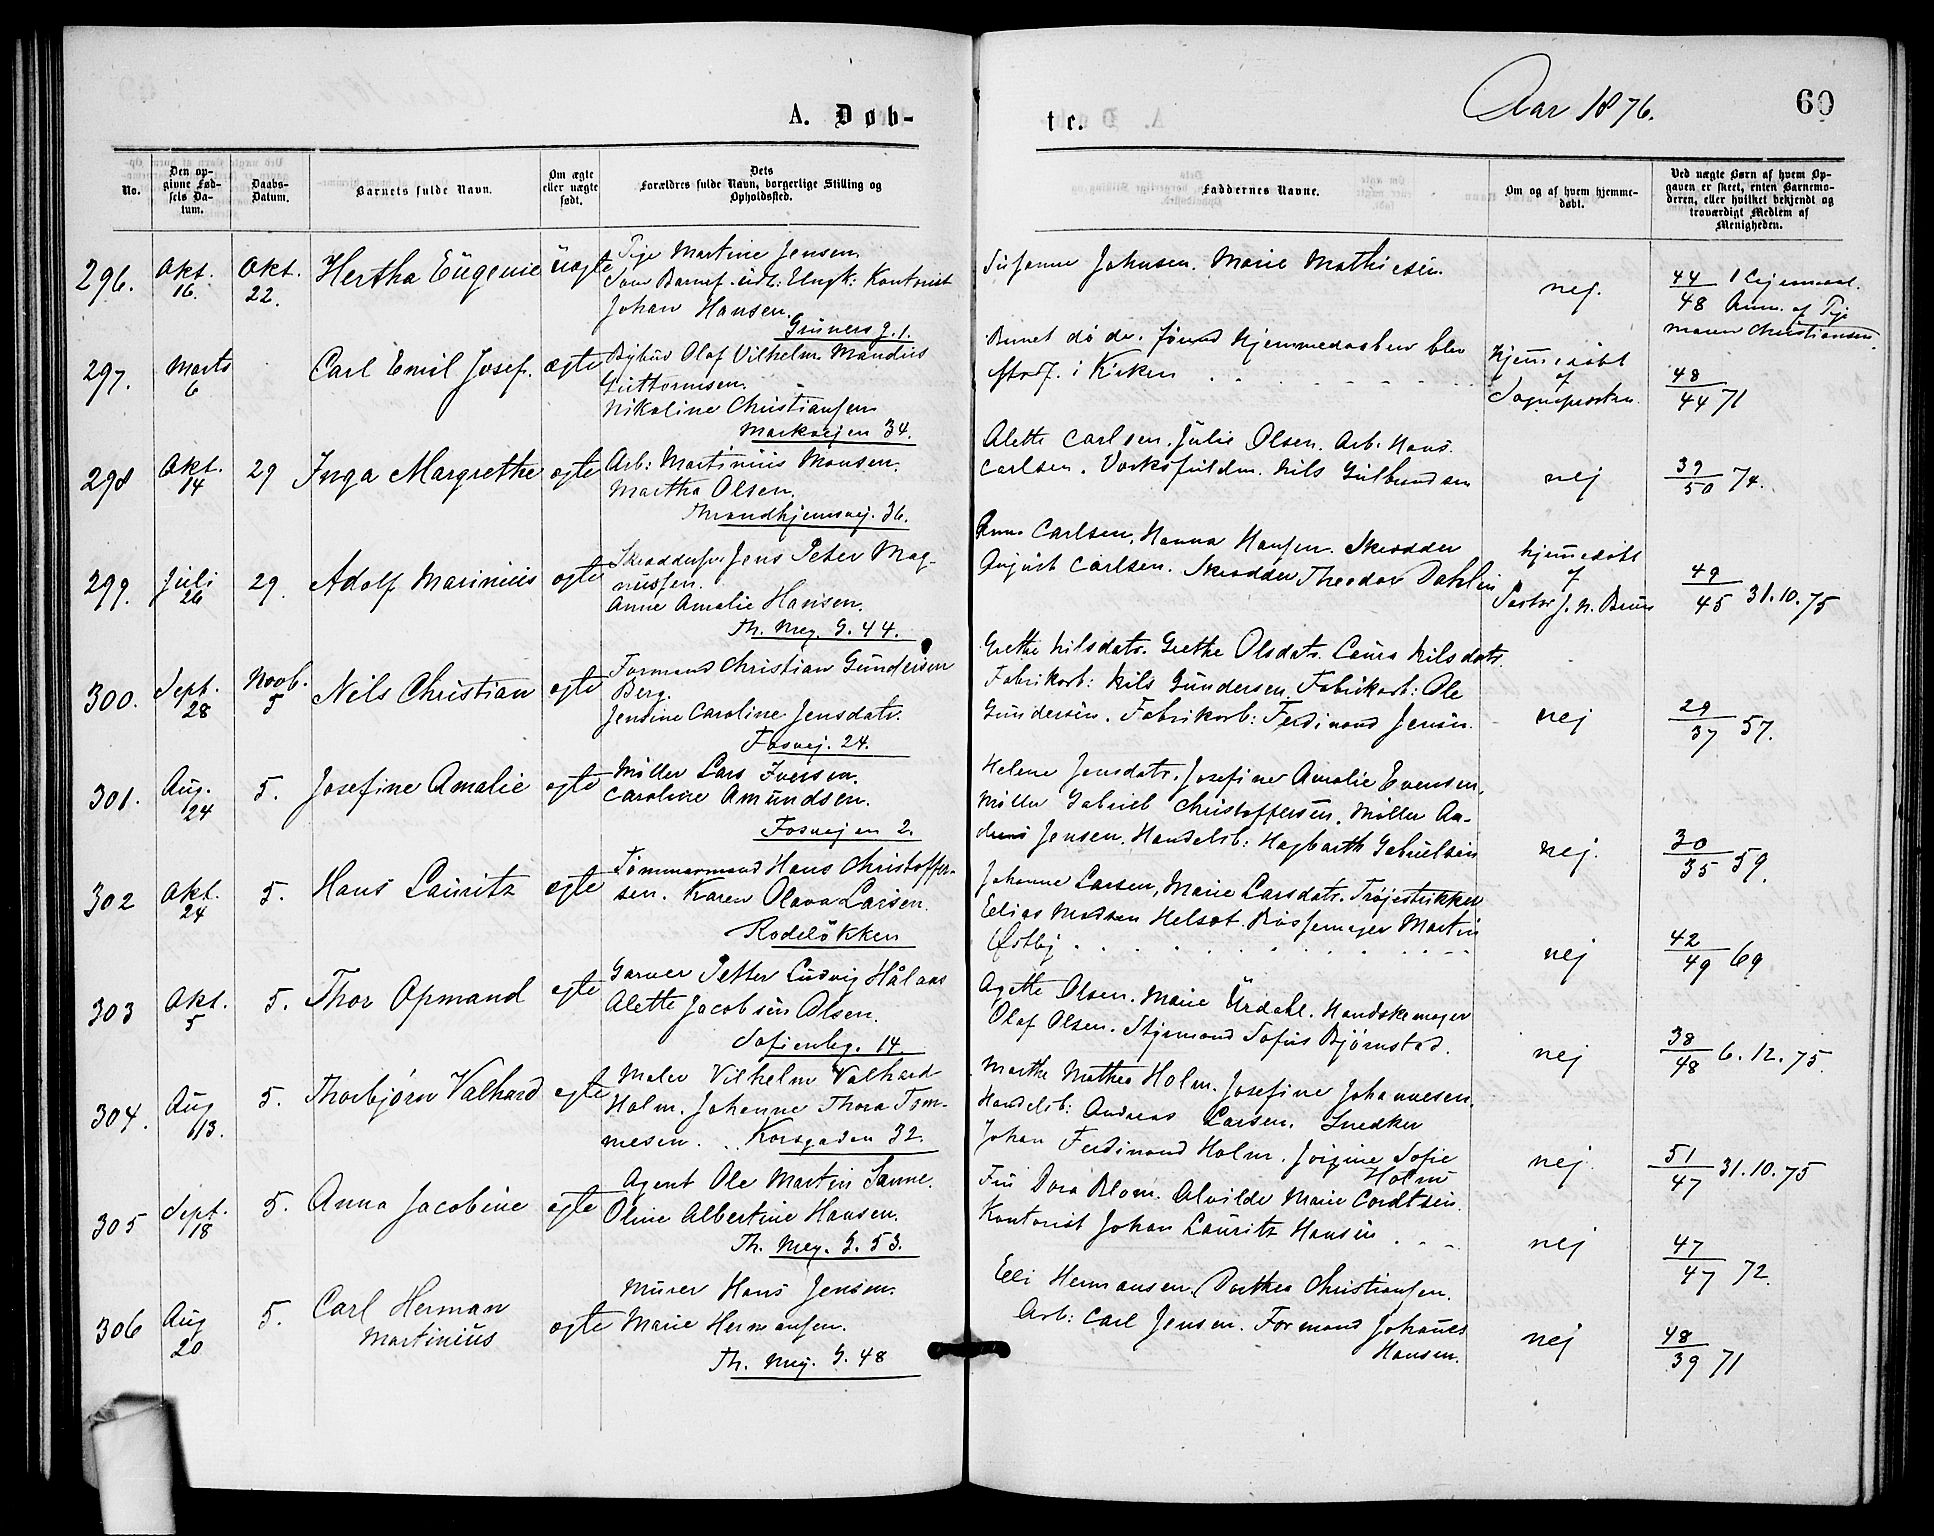 A. Døb-
te.
Aar 1876.
60
No.
Den op-
givne Fød-
sels Da-
tum.
Daabs-
Datum.
Barnets fulde Navn.
Om ægte
eller uægte
født.
Dets
Forældres fulde Navn, borgerlige Stilling og
Opholdssted.
Faddernes Navne.
Om og af hvem hjemme-
døbt.
Ved uægte Børn af hvem Op-
gaven er skeet, enten Barnemo-
deren, eller hvilket bekjendt og
troværdigt Medlem af
Menigheden.
296. Okt. 16. Okt. 22. Hertha Eugenie uægte
Pige Martine Jensen.
Som Barnef. udl: Ungk: Kontorist
Johan Hansen.
Grüners g. 1.
Susanne Johnsen. Marie Mathiesen.
nej.
44/48 1 Leiermaal.
Anm. af Pige
Maren Christiansen.
297. Marts 6 Carl Emil Josef. ægte
Bybud Olaf Vilhelm Mandius
Guttormsen.
Nikoline Christiansen
Markvejen 34.
Barnet døde, førend Hjemmedaaben blev
stadf. i Kirken
hjemmedøbt
af
Sognepresten.
48/44 71
298 Okt. 14 29 Inga Margrethe ægte
Arb: Martinius Monsen.
Martha Olsen.
Throndhjemsvej. 36.
Alette Carlsen. Julie Olsen. Arb. Hans
Carlsen. Værksfuldm. Nils Gulbrandsen
nej
39/50 74.
299. Juli 26 29. Adolf Marinius ægte
Skræddersv. Jens Peter Mag-
nussen.
Anne Amalie Hansen.
Th. Mey. G. 44.
Anne Carlsen, Hanna Hansen. Skrædder
August Carlsen. Skrædder Theodor Dahlin
hjemmedøbt
af
Pastor J. N. Bruun
49/45 31.10.75
300. Sept. 28 Novb. 5 Nils Christian ægte
Formand Christian Gundersen
Berg.
Jensine Caroline Jensdatr.
Fosvej. 24.
Grethe Nilsdatr. Grethe Olsdatr. Laura Nilsdatr.
Fabrikarb: Nils Gundersen. Fabrikarb: Ole
Gundersen. Fabrikarb: Ferdinand Jensen.
nej
29/37 57.
301. Aug. 24 5. Josefine Amalie ægte
Møller Lars Iversen.
Caroline Amundsen.
Fosvejen 2.
Helene Jensdatr. Josefine Amalie Evensen.
Møller Gabriel Christoffersen. Møller An-
dreas Jensen. Handelsb: Hagbarth Gabrielsen
nej.
30/35 59.
302 Okt. 24 5. Hans Lauritz ægte
Tømmermand Hans Christoffer-
sen. Karen Olava Larsen.
Rodeløkken
Johanne Larsen, Marie Larsdatr. Trøjestrikker
Elias Madsen Helset. Bøssemager Martin
Østby
nej
42/49 69
303 Okt. 5 5. Thor Opmand ægte
Garver Petter Ludvig Hålaas
Alette Jacobsen Olsen.
Sofienbg. 14.
Agethe Olsen. Marie Urdahl. Handskemager
Olaf Olsen. Styrmand Sofus Bjørnstad.
nej
38/48 6.12.75.
304. Aug 13. 5. Thorbjørn Valhard ægte
Maler Vilhelm Valhard
Holm. Johanne Thora Tøm-
mesen. Korsgaden 32.
Marthe Mathea Holm. Josefine Johannesen.
Handelsb: Andreas Larsen. Snedker
Johan Ferdinand Holm. Jørgine Sofie
Holm
nej.
51/47 31.10.75
305 Sept. 18 5. Anna Jacobine ægte
Agent Ole Martin Sanne.
Oline Albertine Hansen.
Th. Mey. G. 53.
Fru Dora Blom. Alvilde Marie Cordtsen.
Kontorist Johan Lauritz Hansen
nej
47/47 72.
306 Aug 20 5. Carl Herman
Martinius ægte
Murer Hans Jensen.
Marie Hermansen.
Th. Mey. G. 48
Elli Hermansen. Dorthea Christiansen.
Arb: Carl Jensen. Formand Johannes
Hansen.
nej
48/39 71